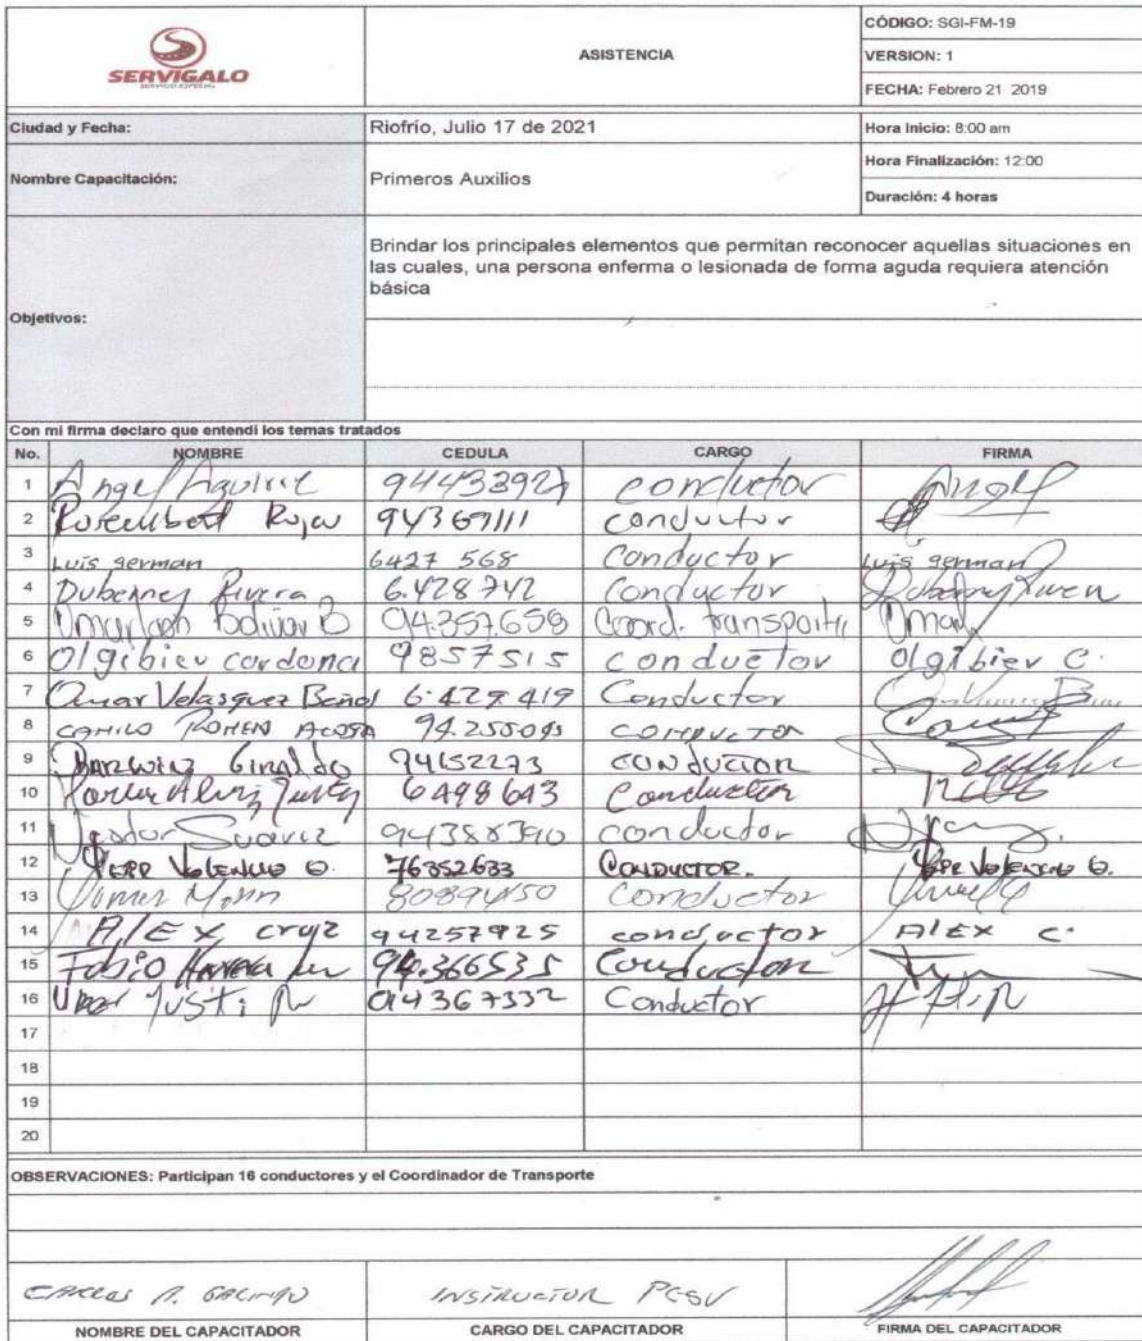 SERVIGALO
SERVICIO ESPECIAL
ASISTENCIA
CÓDIGO: SGI-FM-19
VERSION: 1
FECHA: Febrero 21 2019
Ciudad y Fecha: Riofrío, Julio 17 de 2021 Hora Inicio: 8:00 am
Nombre Capacitación: Primeros Auxilios
Hora Finalización: 12:00
Duración: 4 horas
Objetivos:
Brindar los principales elementos que permitan reconocer aquellas situaciones en
las cuales, una persona enferma o lesionada de forma aguda requiera atención
básica
Con mi firma declaro que entendí los temas tratados
No. NOMBRE CEDULA CARGO FIRMA
1 Angel Aguirre conductor Angel
2 94369111 conductor
3 Luis german 6427 568 Conductor Luis german
4 Duberney Rivera 6.428742 Conductor Duberney
5 Bolivar B 94.357.658 Coord. transporte Omar
6 Olgibiev cardona 9857515 conductor Olgibiev C.
7 Omar Velasquez Bañol 6.429.419 Conductor
8 CAMILO ROMEN ACOSTA 94.255.095 CONDUCTOR
9 DARWING Giraldo 94152273 CONDUCTOR
10 6498643 Conductor
11 Suarez 94388390 conductor
12 Valencia O. 76352633 CONDUCTOR. Valencia O.
13 80894450 Conductor
14 ALEX cruz 94257925 conductor ALEX C.
15 Fabio Herrera 94.366535 Conductor
16 94367332 Conductor
17
18
19
20
OBSERVACIONES: Participan 16 conductores y el Coordinador de Transporte
CARLOS A. GALINDO INSTRUCTOR PESV
NOMBRE DEL CAPACITADOR CARGO DEL CAPACITADOR FIRMA DEL CAPACITADOR